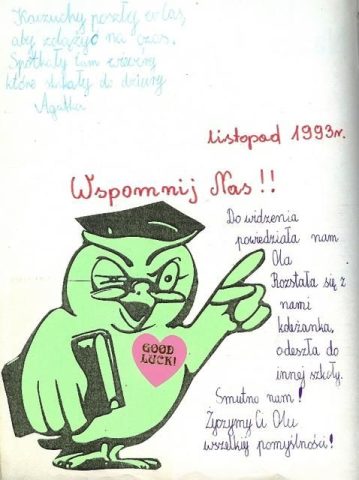 Karzuchy poszły w las,
aby zdążyć na czas.
Spotkały tam
które do dziury
Agatka
listopad 1993r.
Wspomnij Nas!!
Do widzenia
powiedziała nam
Ola
Rozstała się z
nami
koleżanka,
odeszła do
innej szkoły.
Smutno nam!
Życzymy Ci Olu
wszelkiej pomyślności!
GOOD
LUCK!